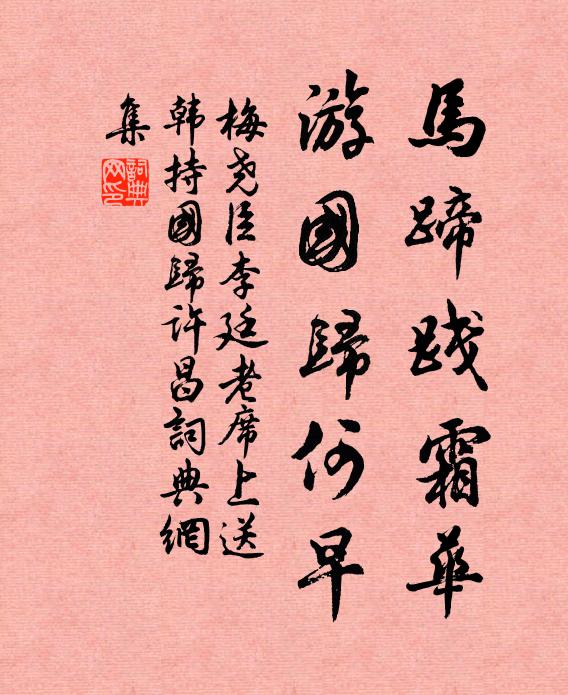 馬蹄踐霜華
游國歸何早
梅尧臣李廷老席上送
韩持國歸许昌詞典網
集
詞典
网印